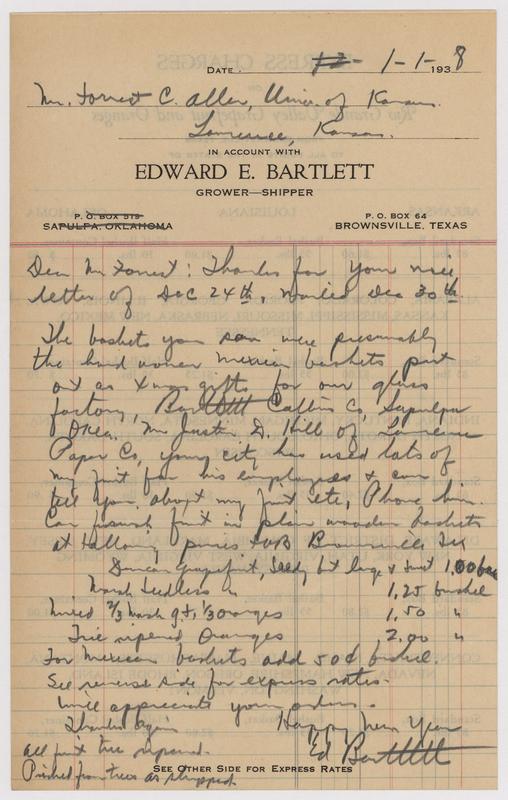 DATE 12- 1-1-1938
Mr. Forrest C. Allen, Univ. of Kansas.
Lawrence, Kansas.
IN ACCOUNT WITH
EDWARD E. BARTLETT
GROWER—SHIPPER
P. O. BOX 519
SAPULPA, OKLAHOMA
P. O. BOX 64
BROWNSVILLE, TEXAS
Dear Mr Forrest: Thanks for your nice
letter of Dec 24th, mailed Dec 30th.
The baskets you saw were presumably
the hand woven Mexican baskets put
out as Xmas gifts for our glass
factory, Bartlett Collins Co, Sapulpa
Okla. Mr Justin D. Hill of Lawrence
Paper Co, your city has used lots of
my fruit for his employees & can
tell you about my fruit etc, Phone him.
Can furnish fruit in plain wooden baskets
at following prices FOB Brownsville Tex
Duncan grapefruit, Seedy but large & sweet 1.00 bu
Marsh Seedless " 1.25 bushel
Mixed 2/3 Marsh gft, 1/3 oranges 1.50 "
Tree ripened Oranges 2.00 "
For Mexican baskets add 50¢ bushel.
See reverse side for express rates.
Will appreciate your orders.
Thanks again Happy New Year
All fruit tree ripened. Ed Bartlett
Picked from trees as shipped.
SEE OTHER SIDE FOR EXPRESS RATES